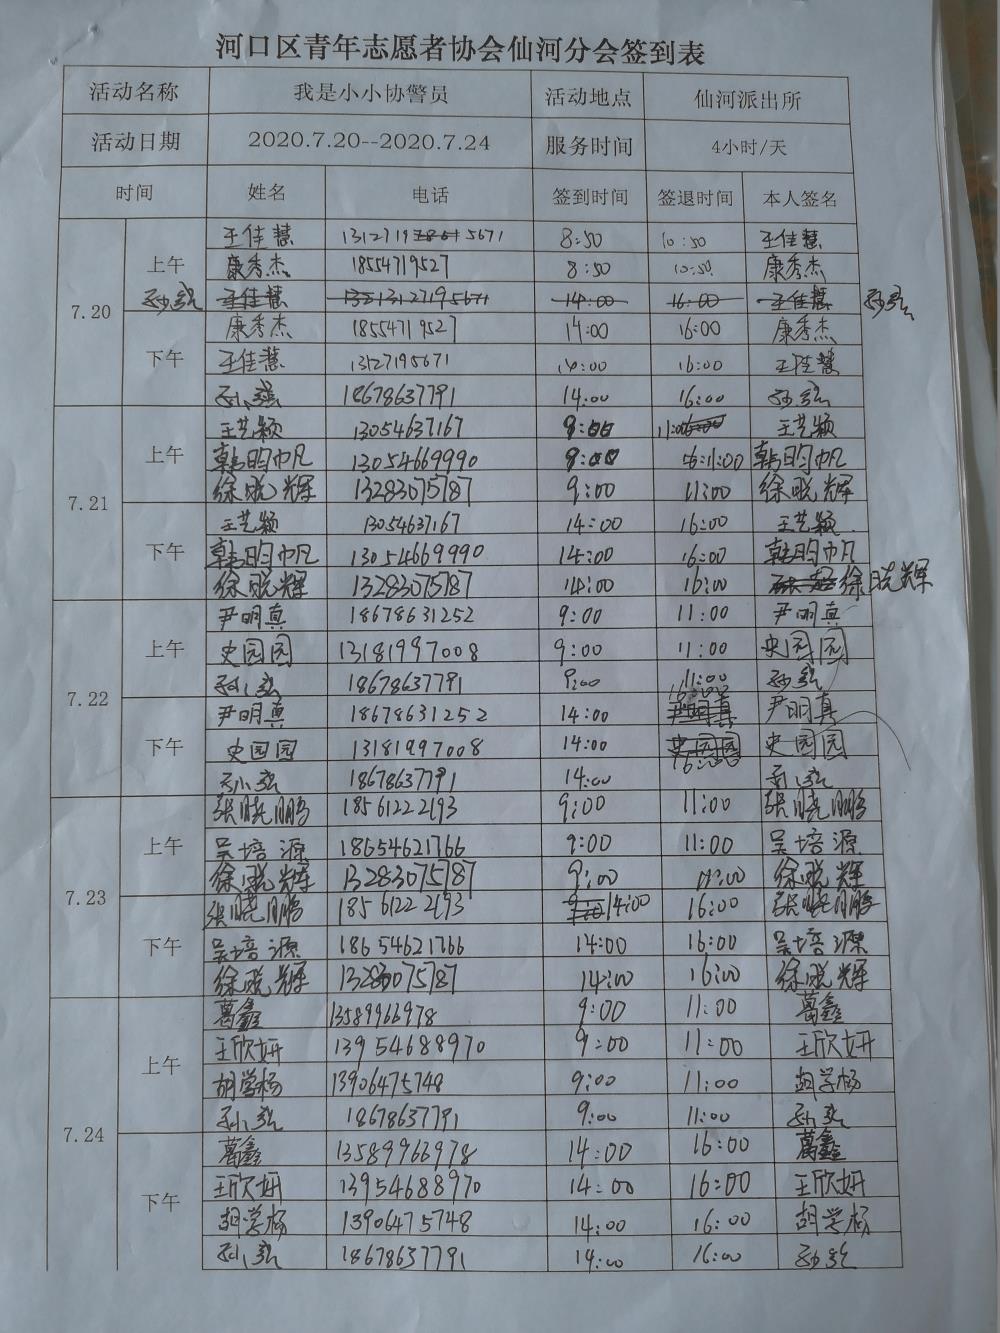 河口区青年志愿者协会仙河分会签到表
活动名称 我是小小协警员 活动地点 仙河派出所
活动日期 2020.7.20--2020.7.24 服务时间 4小时/天
时间 姓名 电话 签到时间 签退时间 本人签名
王佳慧 5671 8:50 10:50 王佳慧
上午 康秀杰 18554719527 8:50 10:50 康秀杰
7.20 王佳慧 14:00 16:00 王佳慧
康秀杰 18554719527 14:00 16:00 康秀杰
下午 王佳慧 13127195671 14:00 16:00 王佳慧
18678637791 14:00 16:00
王艺颖 13054637167 9:00 11:00 王艺颖
上午 韩昀帆 13054669990 9:00 11:00 韩昀帆
7.21 徐晓辉 13283075787 9:00 11:00 徐晓辉
王艺颖 13054637167 14:00 16:00 王艺颖
下午 韩昀帆 13054669990 14:00 16:00 韩昀帆
徐晓辉 13283075787 14:00 16:00 徐晓辉
尹明真 18678631252 9:00 11:00 尹明真
上午 史园园 13181997008 9:00 11:00 史园园
7.22 18678637791 9:00 11:00
尹明真 18678631252 14:00 尹明真 尹明真
下午 史园园 13181997008 14:00 史园园 史园园
18678637791 14:00
张晓鹏 18561222193 9:00 11:00 张晓鹏
上午 吴培源 18654621766 9:00 11:00 吴培源
7.23 徐晓辉 13283075787 9:00 11:00 徐晓辉
张晓鹏 18561222193 14:00 16:00 张晓鹏
下午 吴培源 18654621766 14:00 16:00 吴培源
徐晓辉 13283075787 14:00 16:00 徐晓辉
葛鑫 13589966978 9:00 11:00 葛鑫
上午 王欣妍 13954688970 9:00 11:00 王欣妍
胡学杨 13906475748 9:00 11:00 胡学杨
7.24 18678637791 9:00 11:00
葛鑫 13589966978 14:00 16:00 葛鑫
下午 王欣妍 13954688970 14:00 16:00 王欣妍
胡学杨 13906475748 14:00 16:00 胡学杨
18678637791 14:00 16:00